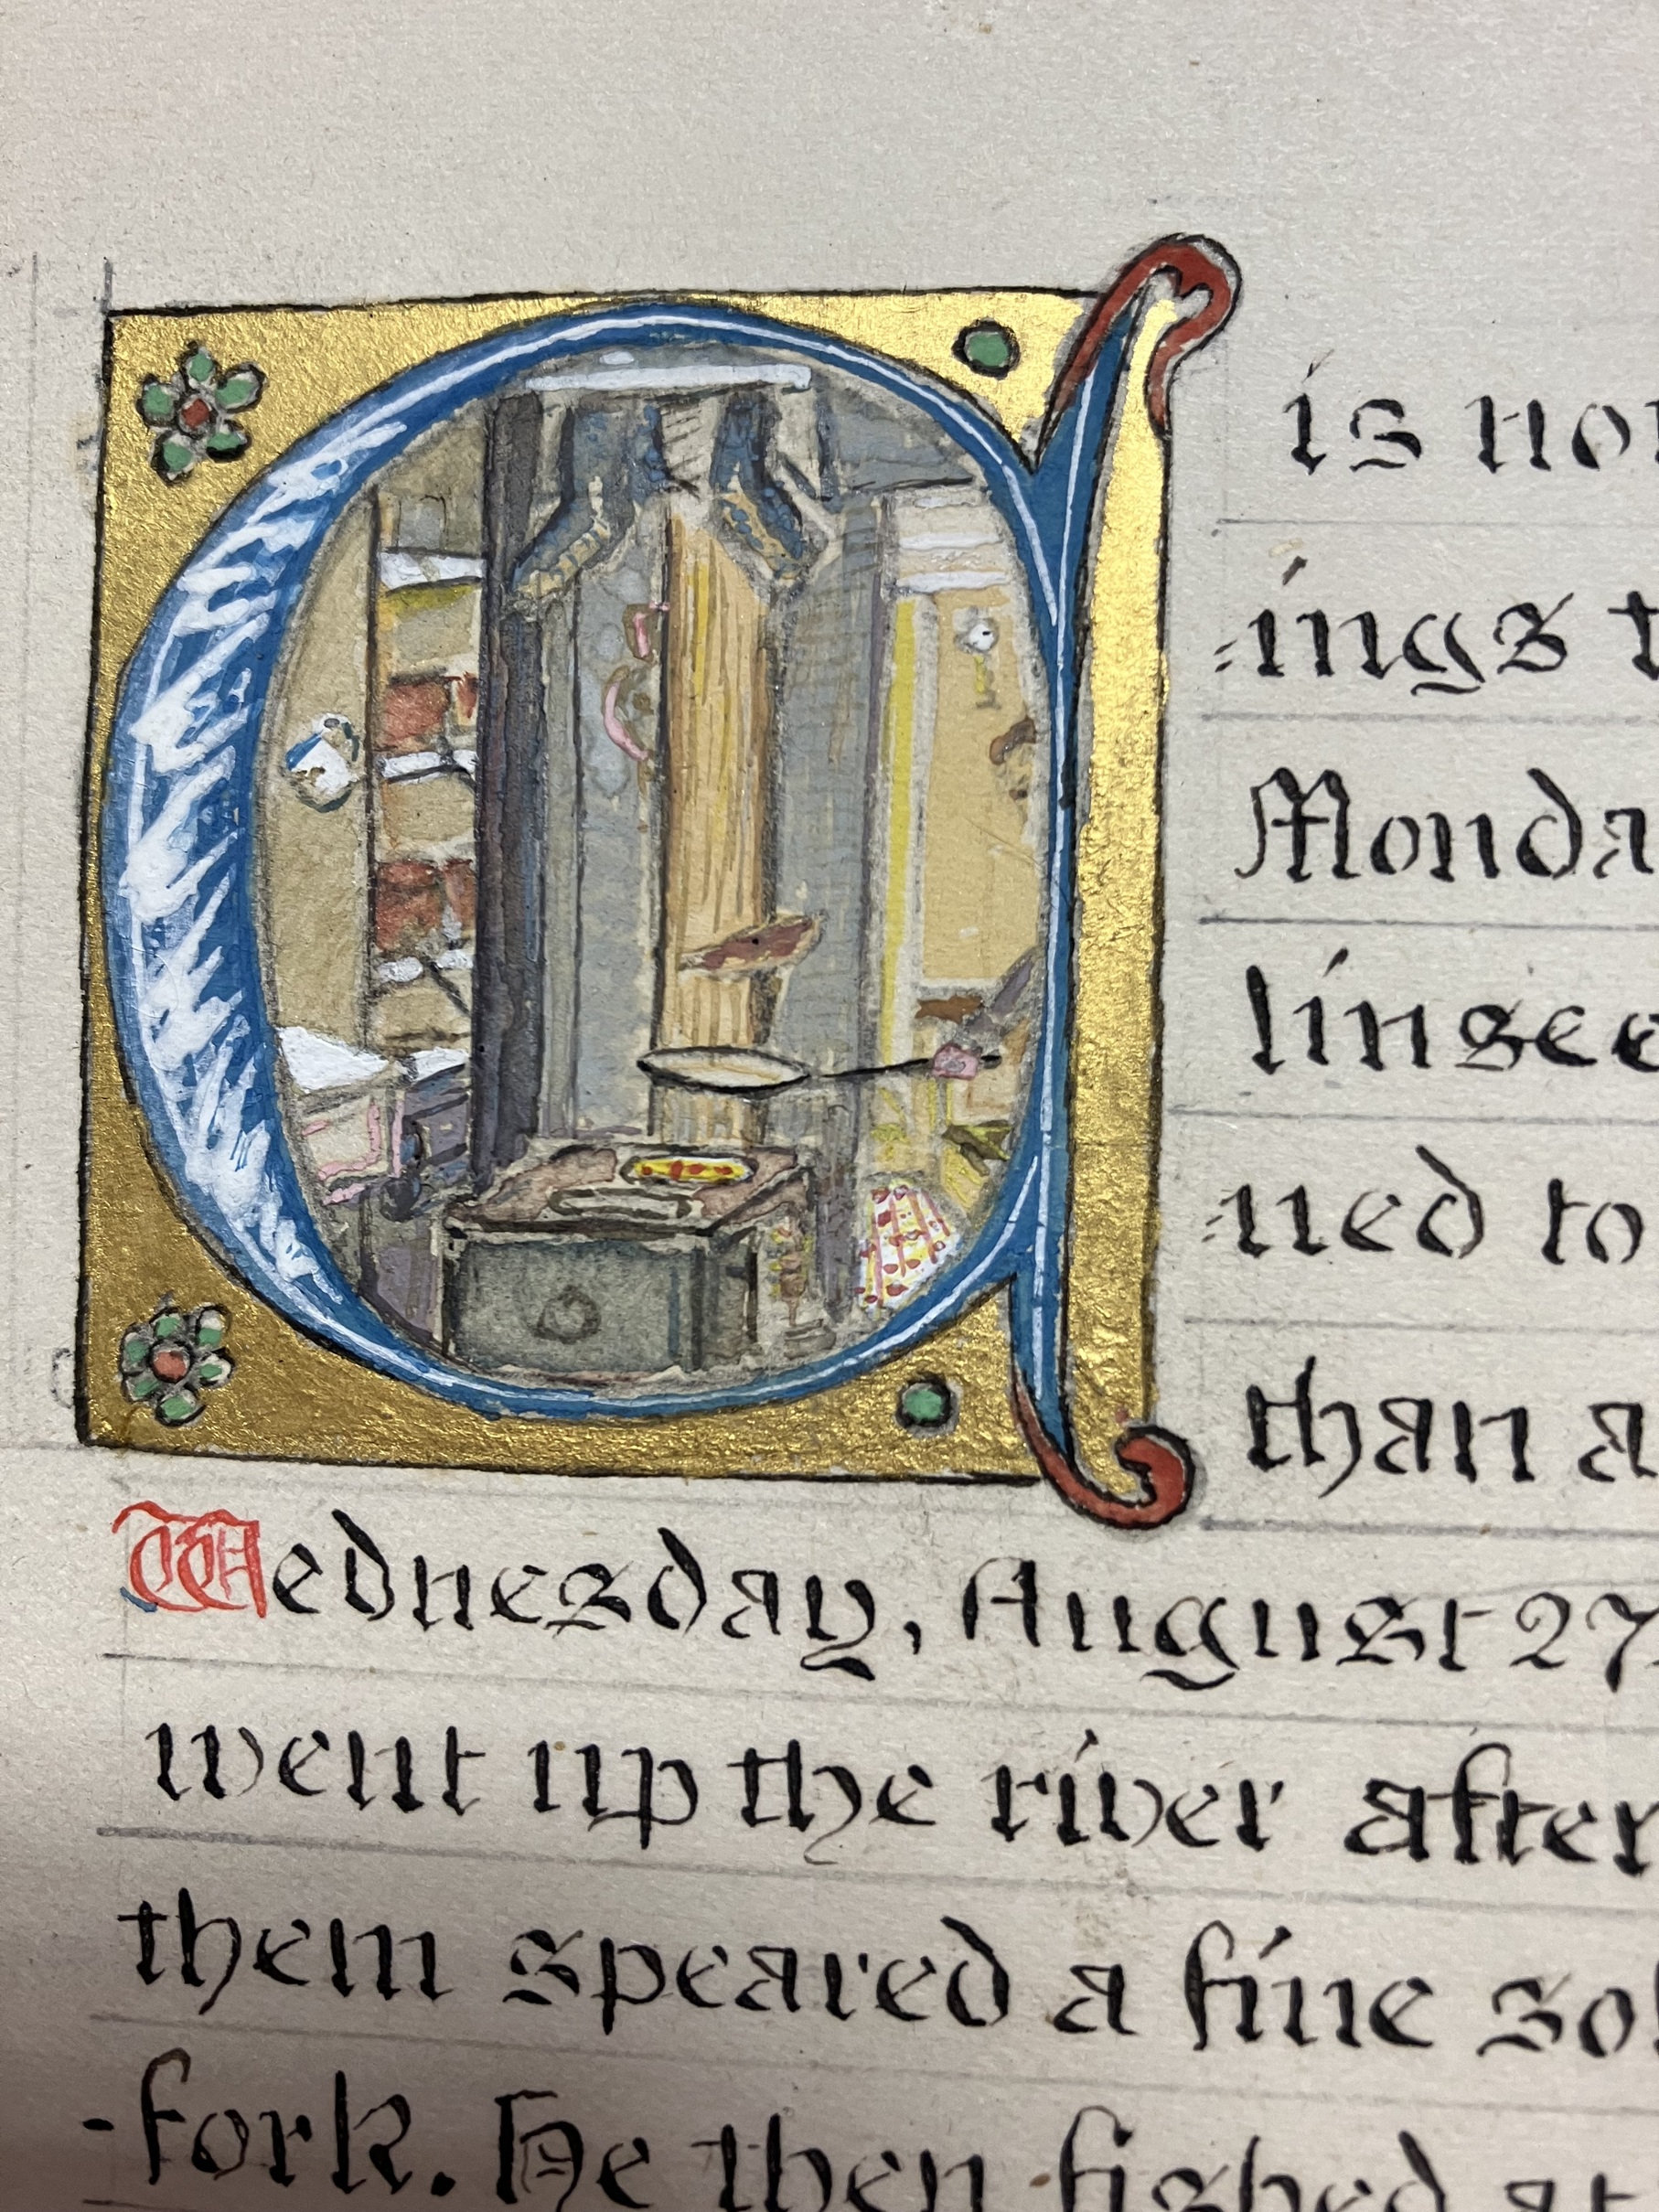 is no
=ings t
Monda
linsee
=ned to
than a
Wednesday, August 27
went up the river after
them speared a fine sol
-fork. He then fished at